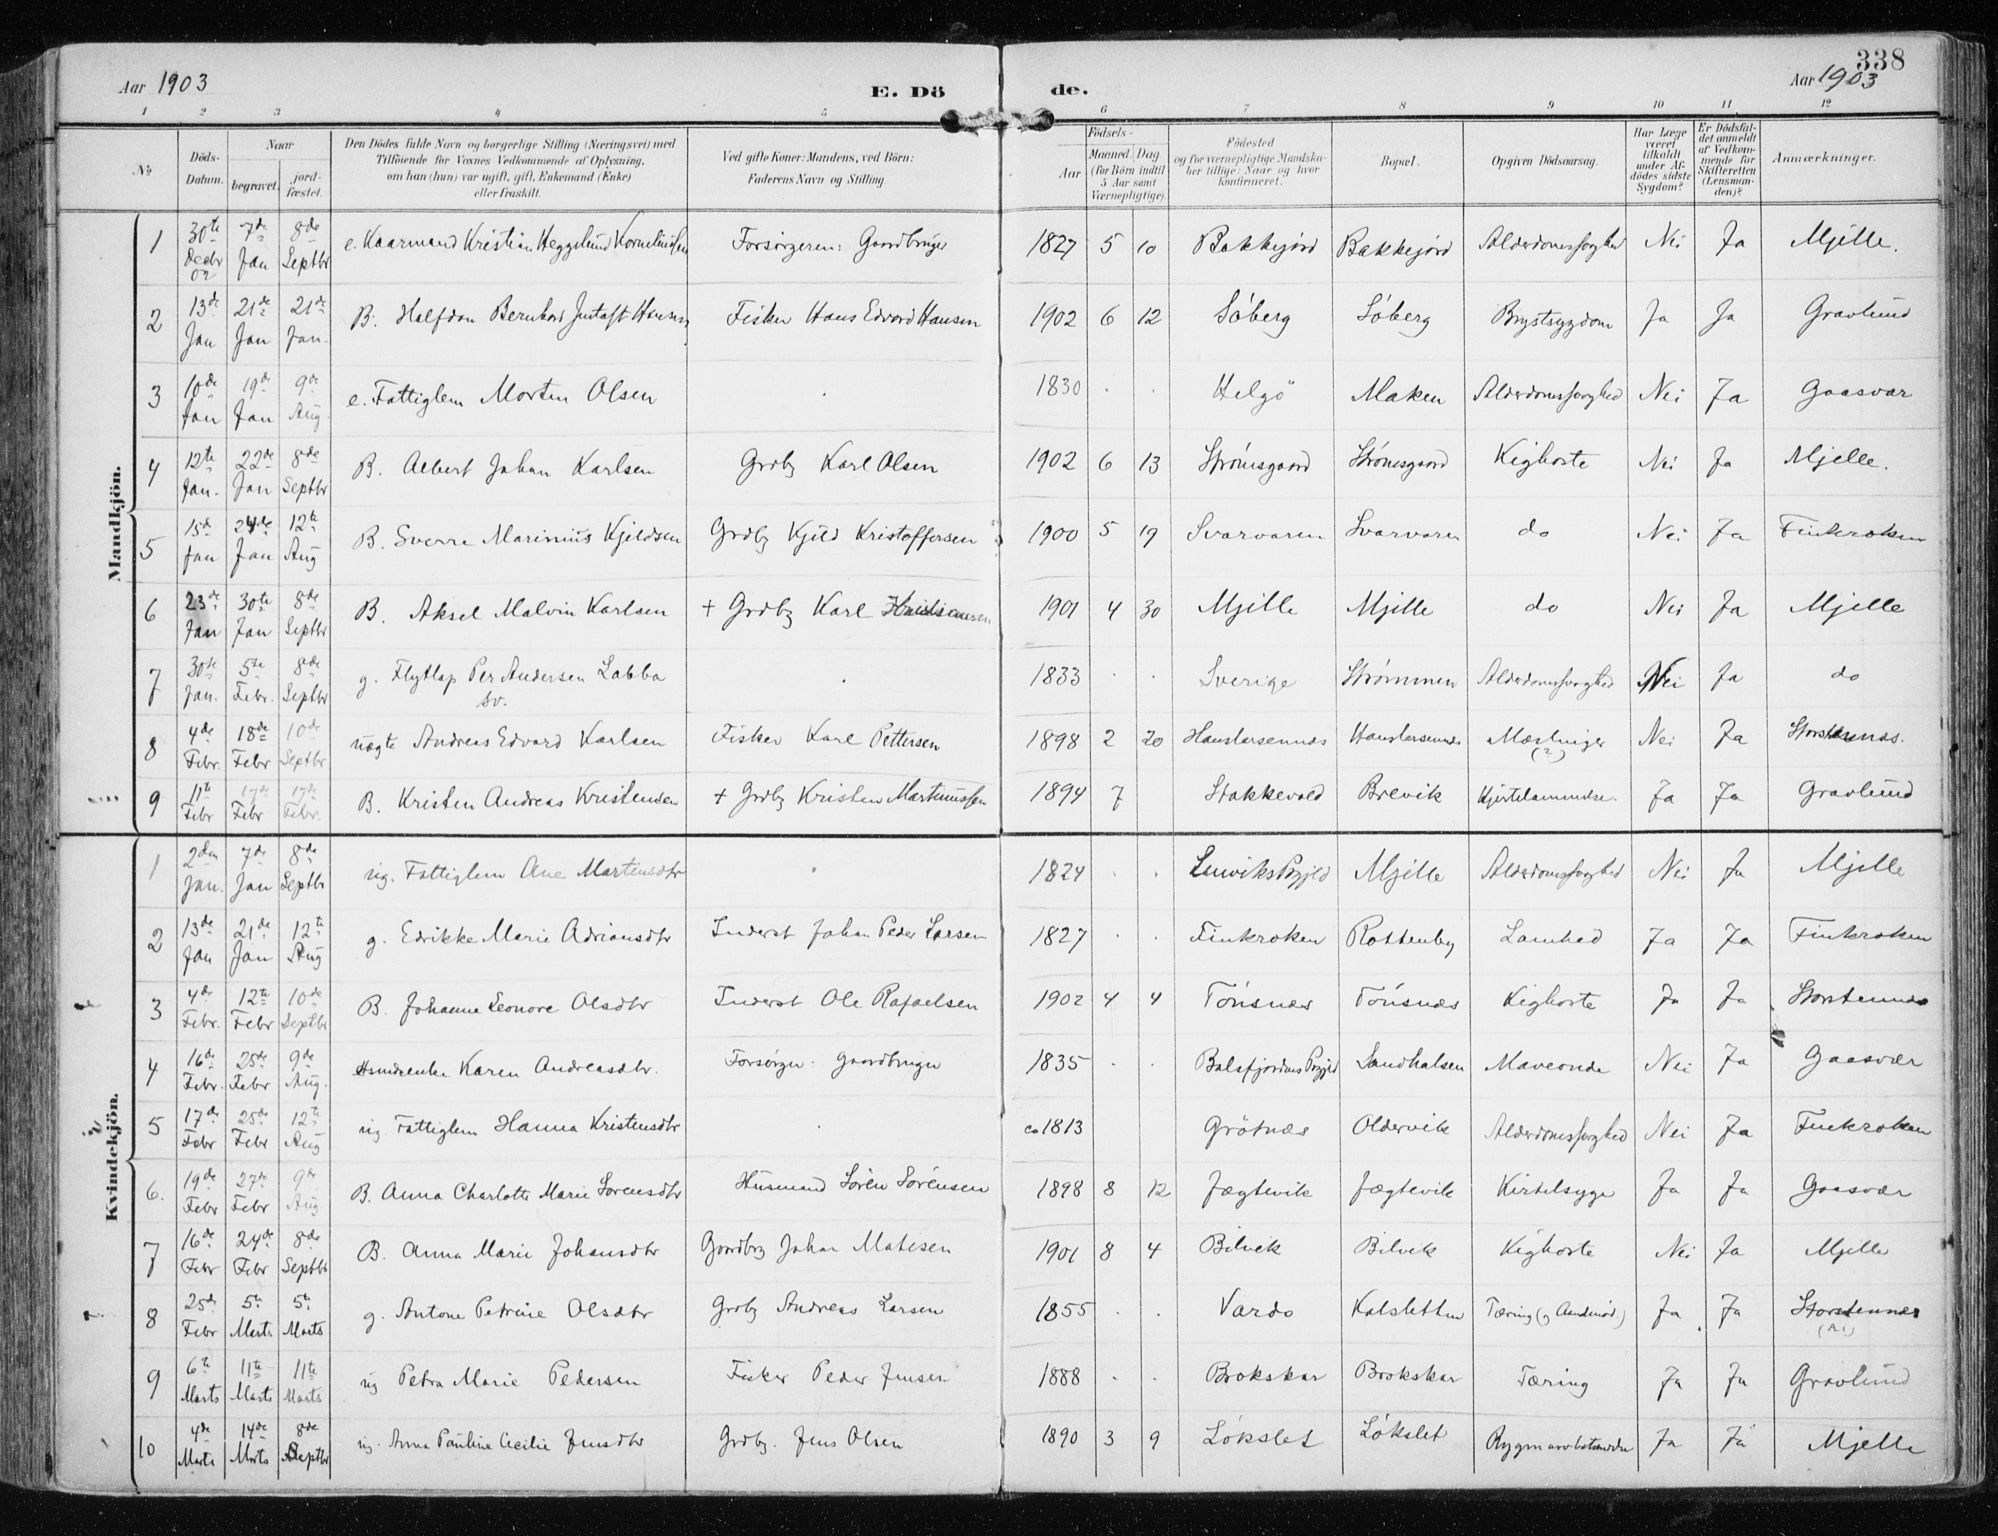 338
Aar 1903
E. Dö de.
Aar 1903
1 2 3 4 5 6 7 8 9 10 11 12
No
Döds-Datum.
Naar
begravet.
jord-fæstet.
Den Dödes fulde Navn og borgerlige Stilling (Næringsvei) med
Tilföiende for Voxnes Vedkommende af Oplysning,
om han (hun) var ugift, gift, Enkemand (Enke)
eller fraskilt.
Ved gifte Koner: Mandens, ved Börn:
Faderens Navn og Stilling
Födsels-
Aar
Maaned. Dag.
(for Börn indtil 5 Aar samt Værnepligtige).
Födested
og for værnepligtige Mandska-
ber tillige: Naar og hvor
konfirmeret.
Bopæl.
Opgiven Dödsaarsag.
Har Læge været tilkaldt under Af-dödes sidste Sygdom?
Er Dödsfal-det anmeldt af Vedkom-mende for Skifteretten (Lensman-den)?
Anmærkninger.
Mandkjön.
1 30te Decbr 02 7de Jan 8de Septbr e. Kaarmand Kristian Heggelund Korneliussen Forsörgeren: Gaardbruger 1827 5 10 Bakkejord Bakkejord Alderdomssvaghed Nei Ja Mjelle.
2 13de Jan 21de Jan 21de Jan. B. Halfdan Bernhard Justaft Hansen Fisker Hans Edvard Hansen 1902 6 12 Söberg Söberg Brystsygdom Ja Ja Gravlund
3 10de Jan 19de Jan 9de Aug. e. Fattiglem Morten Olsen . 1830 . . Helgö Maken Alderdomssvaghed Nei Ja Gaasvær
4 12te Jan. 22de Jan 8de Septbr B. Albert Johan Karlsen Grdbg Karl Olsen 1902 6 13 Strömsgaard Strömsgaard Kighoste Nei Ja Mjelle.
5 15de Jan 24de Jan 12te Aug B. Sverre Marinius Kjeldsen Grdbg Kjeld Kristoffersen 1900 5 19 Svarvaren Svarvaren do Nei Ja Finkroken
6 23de Jan 30te Jan 8de Septbr B. Aksel Malvin Karlsen + Grdbg Karl Kristiansen 1901 4 30 Mjelle Mjelle do Nei Ja Mjelle
7 30te Jan. 5te Febr. 8de Septbr g. Flytlap Per Andersen Labba sv. . 1833 . . Sverige Strömmen Alderdomssvaghed Nei Ja do
8 4de Febr. 18de Febr 10de Septbr uægte Andreas Edvard Karlsen Fisker Karl Pettersen 1898 2 20 Hanslarsennæs Hanslarsennæs Mæslinger (?) Nei Ja Storstennæs.
9 11te Febr 17de Febr 17de Febr. B. Kristen Andreas Kristensen + Grdbg Kristen Martinussen 1894 7 Stakkevold Brevik Hjertelammelse. Ja Ja Gravlund
Kvindekjön.
1 2den Jan. 7de Jan 8de Septbr ug. Fattiglem Ane Martinsdtr . 1824 . . Lenviks Prgjld Mjelle Alderdomssvaghed Nei Ja Mjelle
2 13de Jan 21de Jan 12te Aug g. Edrikke Marie Adriansdtr Inderst Johan Peder Larsen 1827 . . Finkroken Rottenby Lamhed Ja Ja Finkroken
3 4de Febr. 12te Febr 10de Septbr B. Johanne Leonore Olsdtr Inderst Ole Rafaelsen 1902 4 4 Tönsnæs Tönsnæs Kighoste Ja Ja Storstennæs
4 16de Febr. 25de Febr 9de Aug. Karen Andreasdtr. Forsörger: Gaardbruger 1835 . . Balsfjordens Prgjld Sandhalsen Maveonde Nei Ja Gaasvær
5 17de Febr 25de Febr 12te Aug ug. Fattiglem Hanna Kristensdtr . ca 1813 Grötnæs Oldervik Alderdomssvaghed Nei Ja Finkroken
6. 19de Febr 27de Febr 9de Aug B. Anna Charlotte Marie Sörensdtr Husmand Sören Sörensen 1898 8 12 Jægtevik Jægtevik Kirtelsyge Ja Ja Gaasvær
7 16de Febr 24de Febr 8de Septbr B. Anna Marie Johansdtr Gaardbrg Johan Matisen 1901 8 4 Bilvik Bilvik Kighoste Nei Ja Mjelle
8 25de Febr 5te Marts 5te Marts g. Antone Petrine Olsdtr Grdbg Andreas Larsen 1855 . . Vardö Kalsletten Tæring (og Aandnöd.) Ja Ja Storstennæs
9 6te Marts 11te Marts 11te Marts ug Petra Marie Pedersen Fisker Peder Jensen 1888 . . Brokskar Brokskar Tæring Ja Ja Gravlund
10 4de Marts 14de Marts 8de Septbr ug. Anna Pauline Cecilie Jensdtr Grdbg. Jens Olsen 1890 3 9 Lökslet Lökslet Ja Ja Mjelle